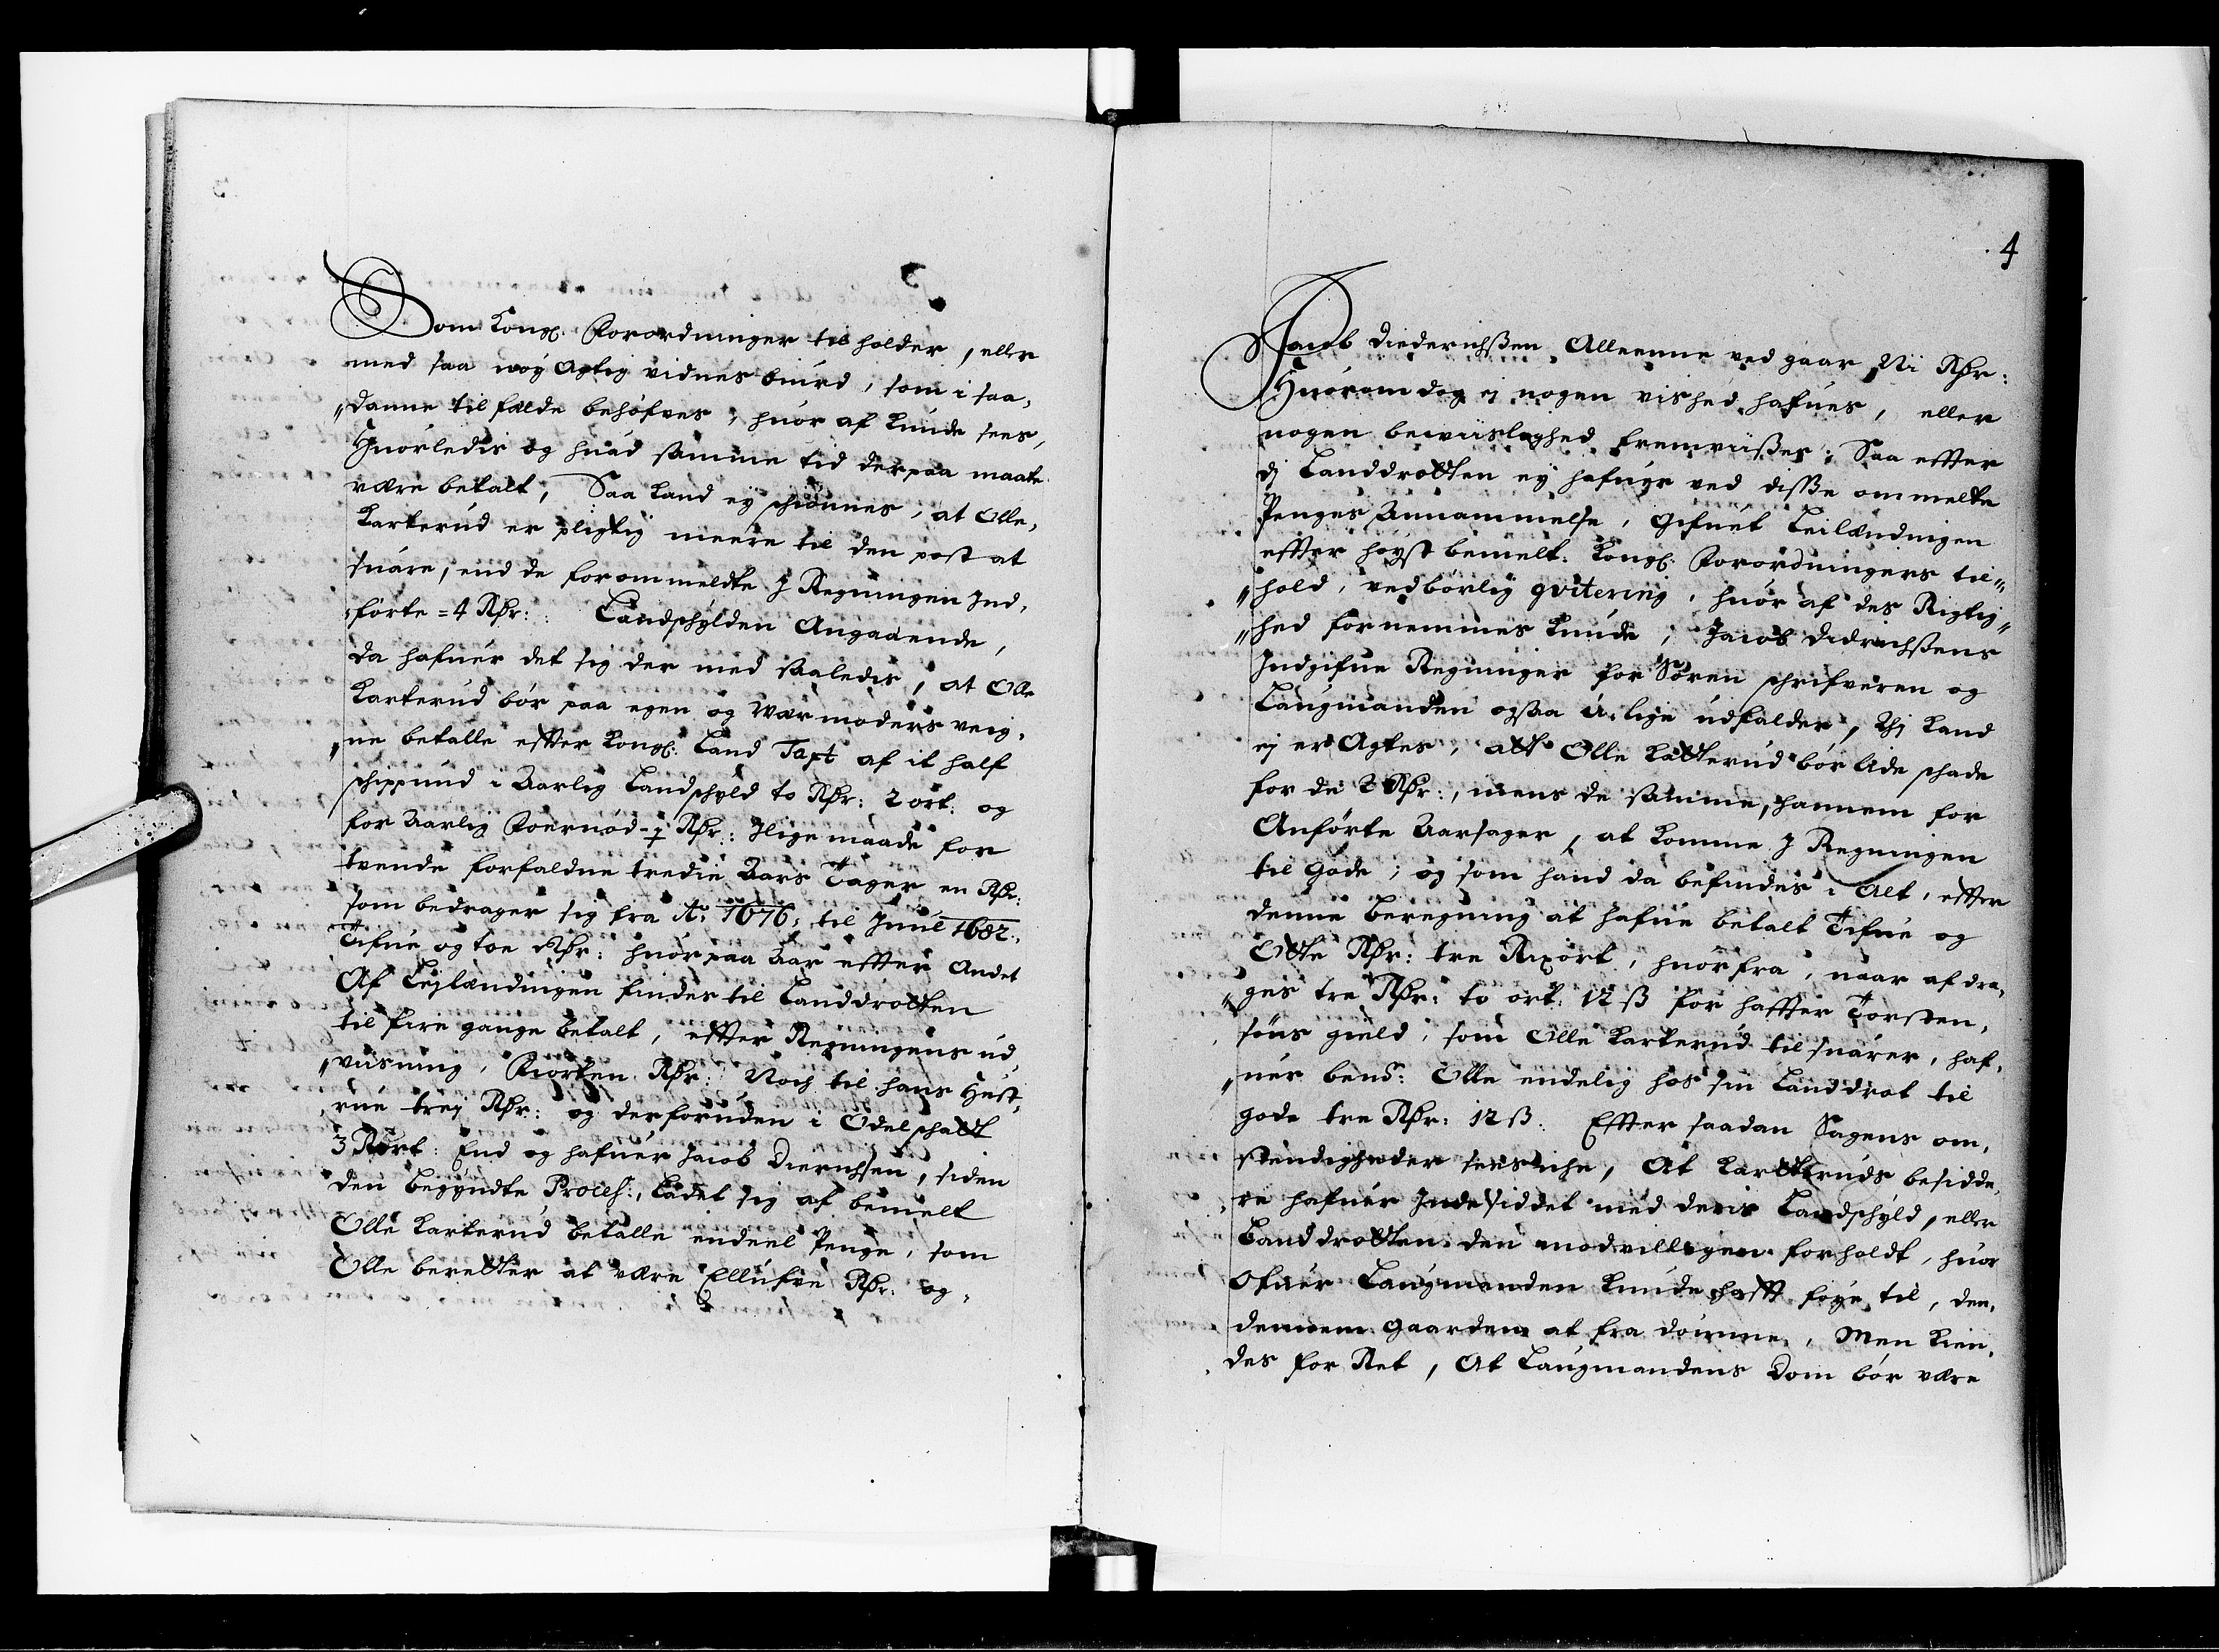 Som Kongl. Forordninger til holder, eller
med saa nøÿ Agtig vidnes biürd, som i saa„
„danne tilfælde behøfves, huor af kunde sees,
Huorledis og huad samme tid derpaa maate
være betalt, Saa kand eÿ schiønnes, at Olle
Karterud er pligtig meere til den post at
suare, end de forommeldte J Regningen Ind„
„førte = 4 Rdr: Landschÿlden Angaaende,
da hafuer det sig der med saaledis, at Olle
Karterud bør paa egen og Wær moders veig„
„ne betalle effter Kongl. Land Taxt af it half
schippund i Aarlig Landschÿld to Rdr: 2 ort: og
for Aarlig Foernød - 1 Rdr: Jlige maade for
tvende forfaldne tredie Aars Tager en Rdr:
som bedrager sig fra Ao: 1676: til Junÿ 1682.
Tifue og toe Rdr: huorpaa Aar effter Andet
Af Lejlændingen findes til Landdrotten
til fire gange betalt, effter Regningens ud„
„viisning, Fiorten Rdr: Noch til hans Hust„
„rue treÿ Rdr: og derforuden i Odelschatt
3 Rort: End og hafuer Jacob Dierichsen, siden
den begÿndte Process:, ladet sig af bemelt
Olle Karterud betalle endeel Penge, som
Olle beretter at være Ellufve Rdr: og
4
Jacob Diederichssen Alleenne ved gaar Ni Rdr:
Huorom dog ej nogen vished hafues, eller
nogen beviislighed fremviisses; Saa effter
dj Landdrotten eÿ hafuer ved disse ommelte
Penges Annammelse, Gifuet Leilændingen
effter høÿst bemelt. Kongl. Forordningers til„
„hold, vedbørlig qvitering, huor af des Rigtig„
„hed fornemmes kunde, Jacob Didrichssens
Indgifne Regninger for Sørenschrifveren og
Laugmanden ogsaa u-lige udfalder, thj kand
ej er Agtes, at Olle Katterud bør lide schade
for de 2 Rdr:, mens de samme, hannem for
Anførte Aarsager, at komme J Regningen
til Gode; og som hand da befindes i Alt, effter
denne beregning at hafue betalt Tifue og
Otte Rdr: tre Rixort, huor fra, naar af dra„
„ges tre Rdr: to ort: 12 ß for haffter Torsten„
søns gield, som Olle Karterud til suarer, haf„
„uer bemt: Olle endelig hos sin Landdrot til
gode tre Rdr: 12 ß. Effter saadan Sagens om„
stendigheder seesiche, At Kartteruds besidde„
„re hafuer Inde siddet med deris Landschÿld, eller
Landdrotten den modvilligen forholdt, huor
Ofuer Laugmanden kunde hafft føÿe til, den„
dennem Gaarden at fra dømme, Men kien„
des for Ret, At Laugmandens Dom bør være